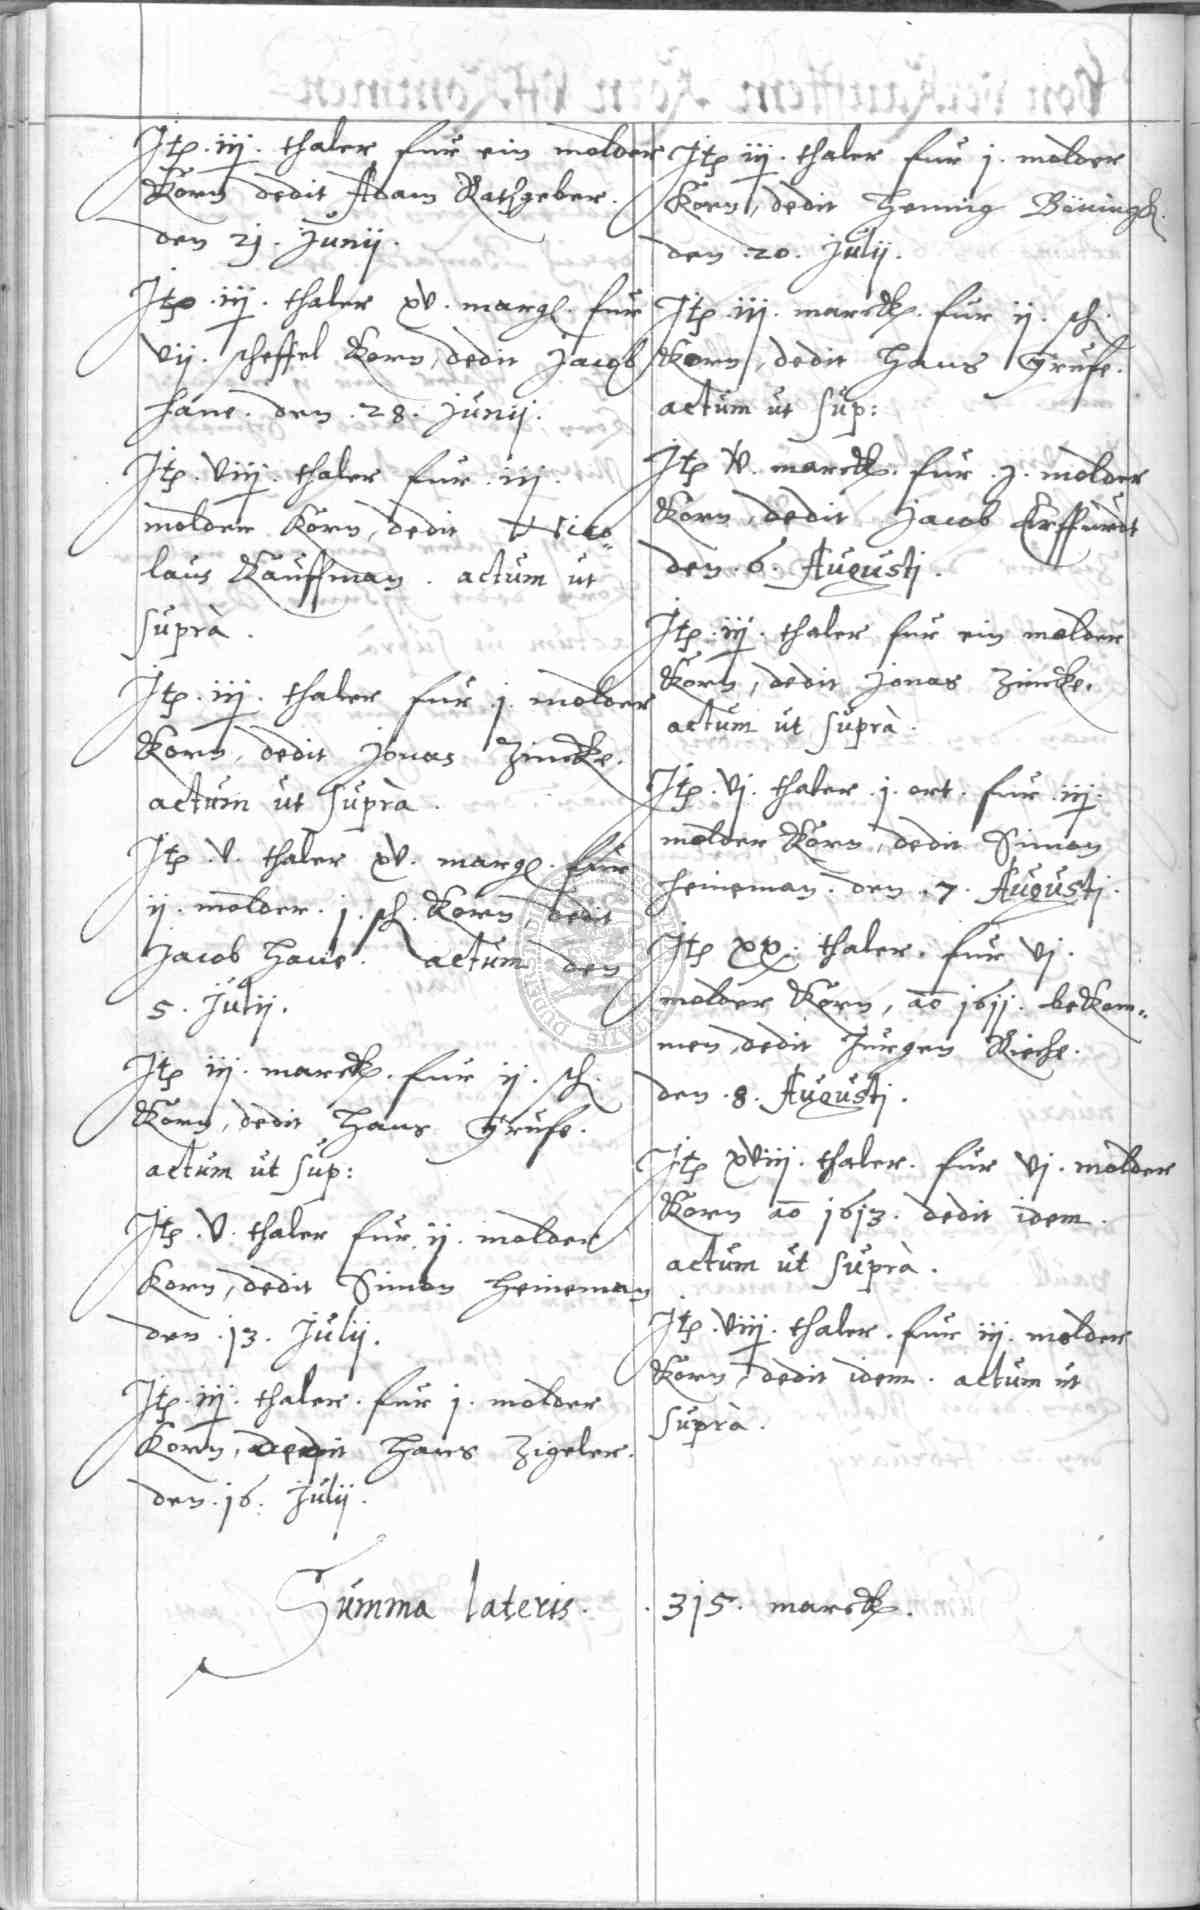 Itp .iij. thaler fur ein molder
Korn dedit Adam Rathgeber.
den 2j. Junij.
Itp .iij. thaler xv. margl. fur
vij. scheffel Korn, dedit Jacob
Hane. den .28. Junij.
Itp .viij. thaler fur .iij.
molder Korn, dedit Nico-
laus Kauffman. actum ut
suprà.
Itp .iij. thaler fur j. molder
Korn, dedit Jonas Zincke.
actum ut suprà.
Itp .v. thaler xv. margl. fur
ij. molder. j. sch. Korn, dedit
Jacob Hane. actum den
5. Julij.
Itp iij. marck. fur ij. sch.
Korn, dedit Hans Grufe.
actum ut sup:
Itp .v. thaler fur ij. molder
Korn, dedit Simon Heineman
den .j3. Julij.
Itp .iij. thaler. fur j. molder
Korn, dedit Hans Zigeler.
den .j6. Julij.
Itp iij. thaler fur j. molder
Korn, dedit Hennig
den .20. Julij.
Itp .iij. marck. fur ij. sch.
Korn, dedit Hans Grufe.
actum ut sup:
Itp v. marck. fur .j. molder
Korn, dedit Jacob Erffurdt
den .6. Augustj.
Itp .iij. thaler fur ein molder
Korn, dedit Jonas Zincke.
actum ut suprà.
Itp .vj. thaler .j. ort. fur .iij.
molder Korn, dedit Simon
Heineman. den .7. Augustj.
Itp xx. thaler. fur vj.
molder Korn, ao j6jj. bekom-
men, dedit Jurgen Rieche.
den .8. Augustj.
Itp xviij. thaler. fur vj. molder
Korn ao j6j3. dedit idem.
actum ut suprà.
Itp .viij. thaler. fur iij. molder
Korn, dedit idem. actum ut
suprà.
Summa lateris. . 3j5. marck.